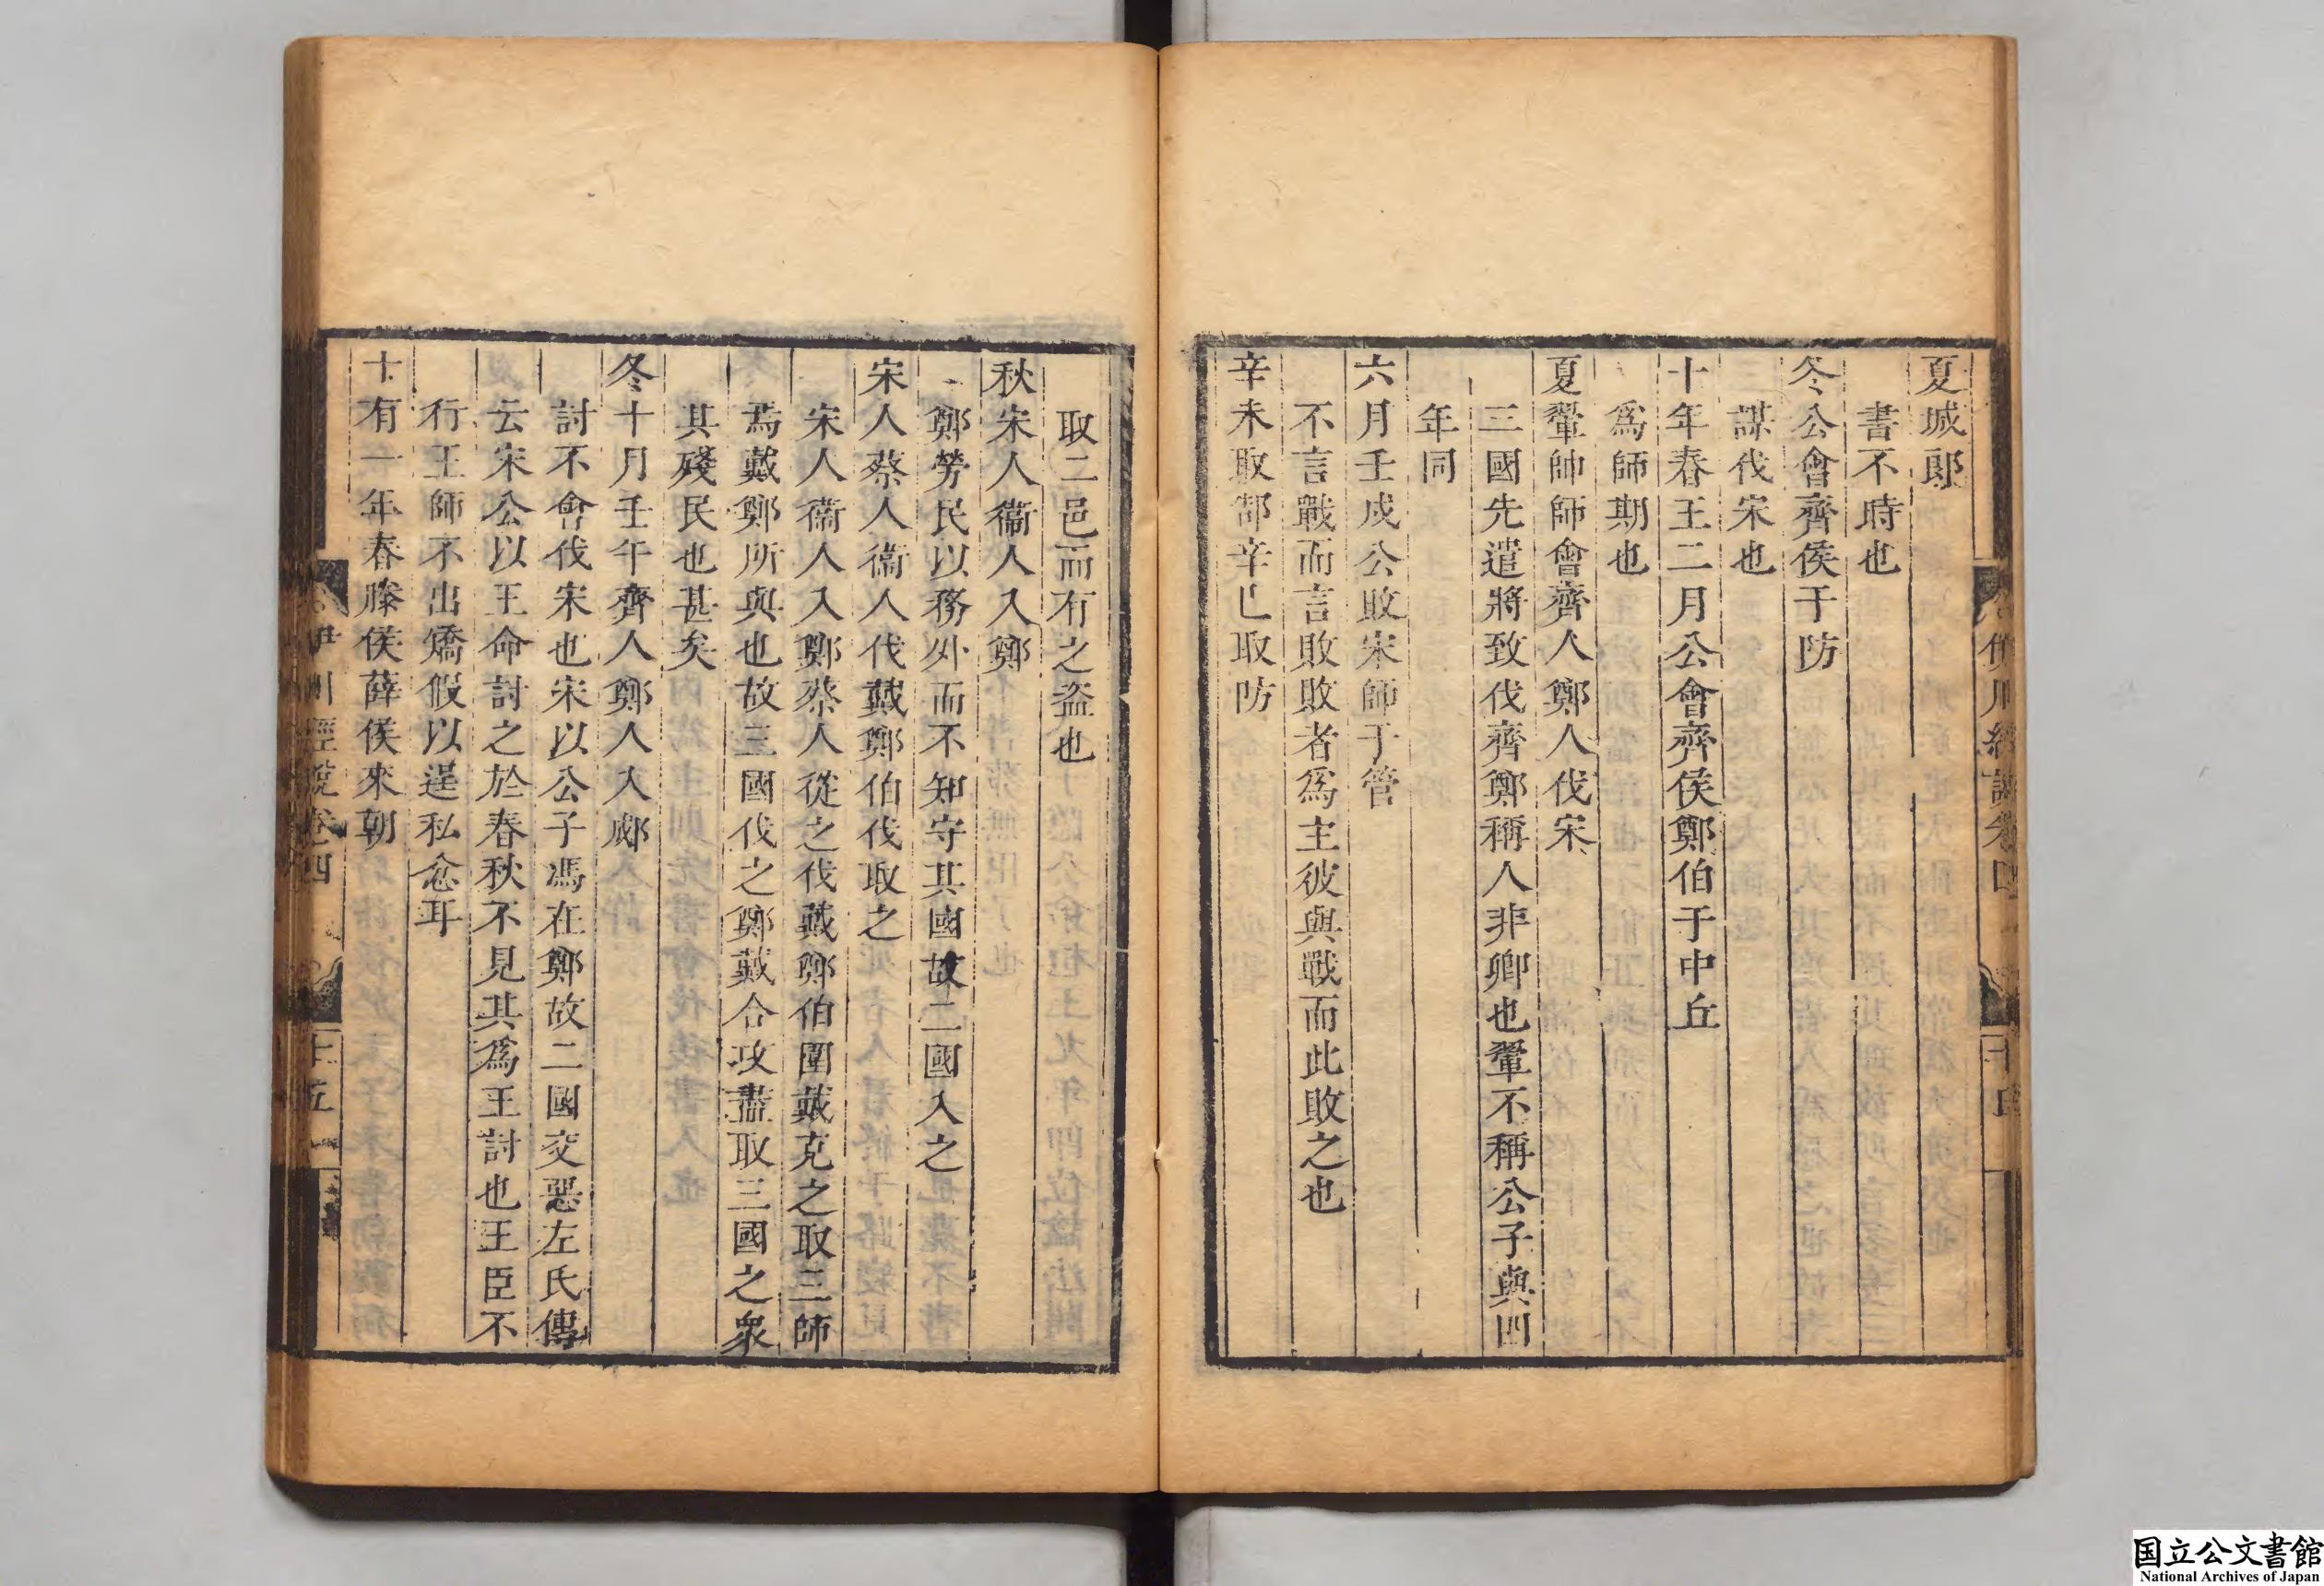 夏城郎
書不時也
冬公會齊侯于防
謀伐宋也
十年春王二月公會齊侯鄭伯于中丘
爲師期也
夏翬帥師會齊人鄭人伐宋
三國先遣將致伐齊鄭稱人非卿也翬不稱公子與四
年同
六月壬戌公敗宋師于管
不言戰而言敗敗者爲主彼與戰而此敗之也
辛未取郜辛巳取防
取二邑而有之盜也
秋宋人衞人入鄭
鄭勞民以務外而不知守其國故二國入之
宋人蔡人衞人伐戴鄭伯伐取之
宋人衞人入鄭蔡人從之伐戴鄭伯圍戴克之取三師
焉戴鄭所與也故三國伐之鄭戴合攻盡取三國之衆
其殘民也甚矣
冬十月壬午齊人鄭人入郕
討不會伐宋也宋以公子馮在鄭故二國交惡左氏傳
云宋公以王命討之於春秋不見其爲王討也王臣不
行王師不出矯假以逞私忿耳
十有一年春滕侯薛侯來朝
伊川經說卷四
十五
国立公文書館
National Archives of Japan